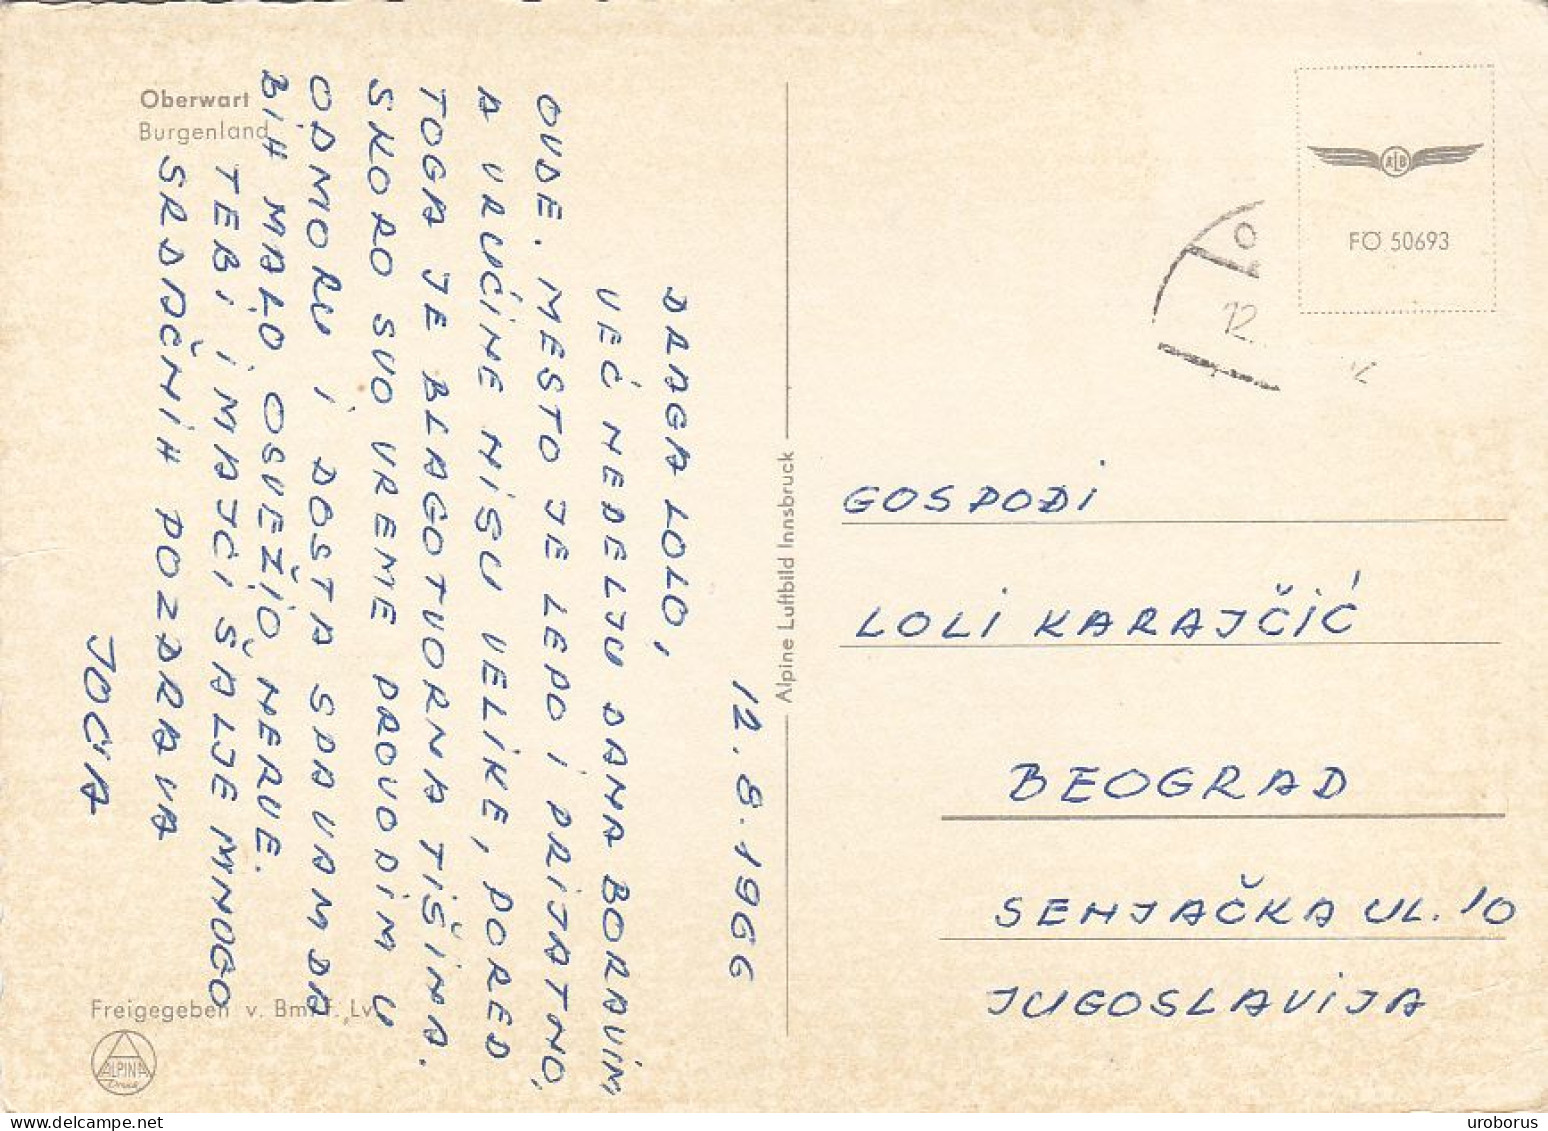 Oberwart
Burgenland
12.8.1966
DRAGA LOLO,
VEĆ NEDELJU DANA BORAVIM
OVDE. MESTO JE LEPO I PRIJATNO,
A VRUĆINE NISU VELIKE, PORED
TOGA JE BLAGOTVORNA TIŠINA.
SKORO SVO VREME PROVODIM U
ODMORU I DOSTA SPAVAM DA
BIH MALO OSVEŽIO NERVE.
TEBI I MAJCI ŠALJE MNOGO
SRDAČNIH POZDRAVA
JOCA
Freigegeben v. Bm. f. Lv.
ALPINA
Druck
Alpine Luftbild Innsbruck
ALB
FÖ 50693
12.
GOSPOĐI
LOLI KARAJČIĆ
BEOGRAD
SENJAČKA UL. 10
JUGOSLAVIJA
delcampe.net
uroborus